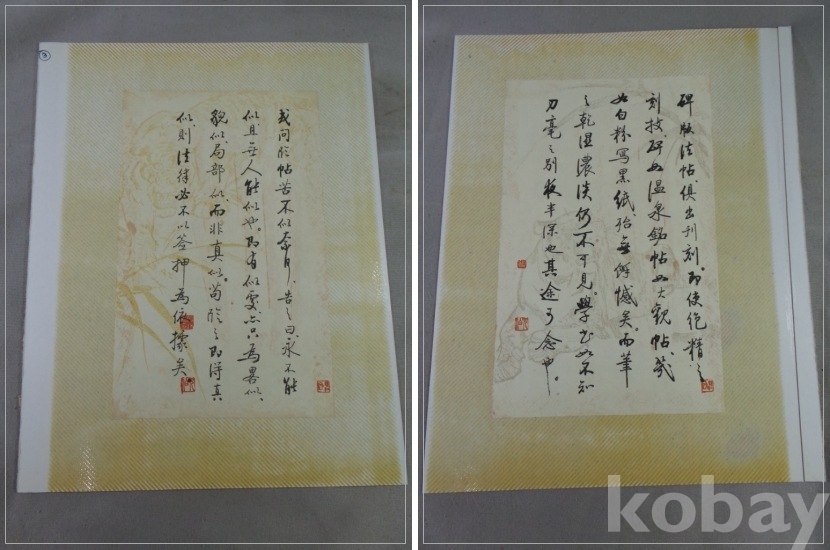 ③
或問臨帖苦不似奈何告之曰永不能
似且無人能似也即有似處亦只為畧似、
貌似局部似而非真似。苟臨之即得真
似則法律必不以簽押為依據矣
碑版法帖俱出刊刻即使絕精之
刻技碑如溫泉銘帖如大觀帖幾
如白粉寫黑紙殆無餘憾矣而筆
之乾濕濃淡仍不可見。學書如不知
刀毫之別夜半深池其途可念也。
kobay